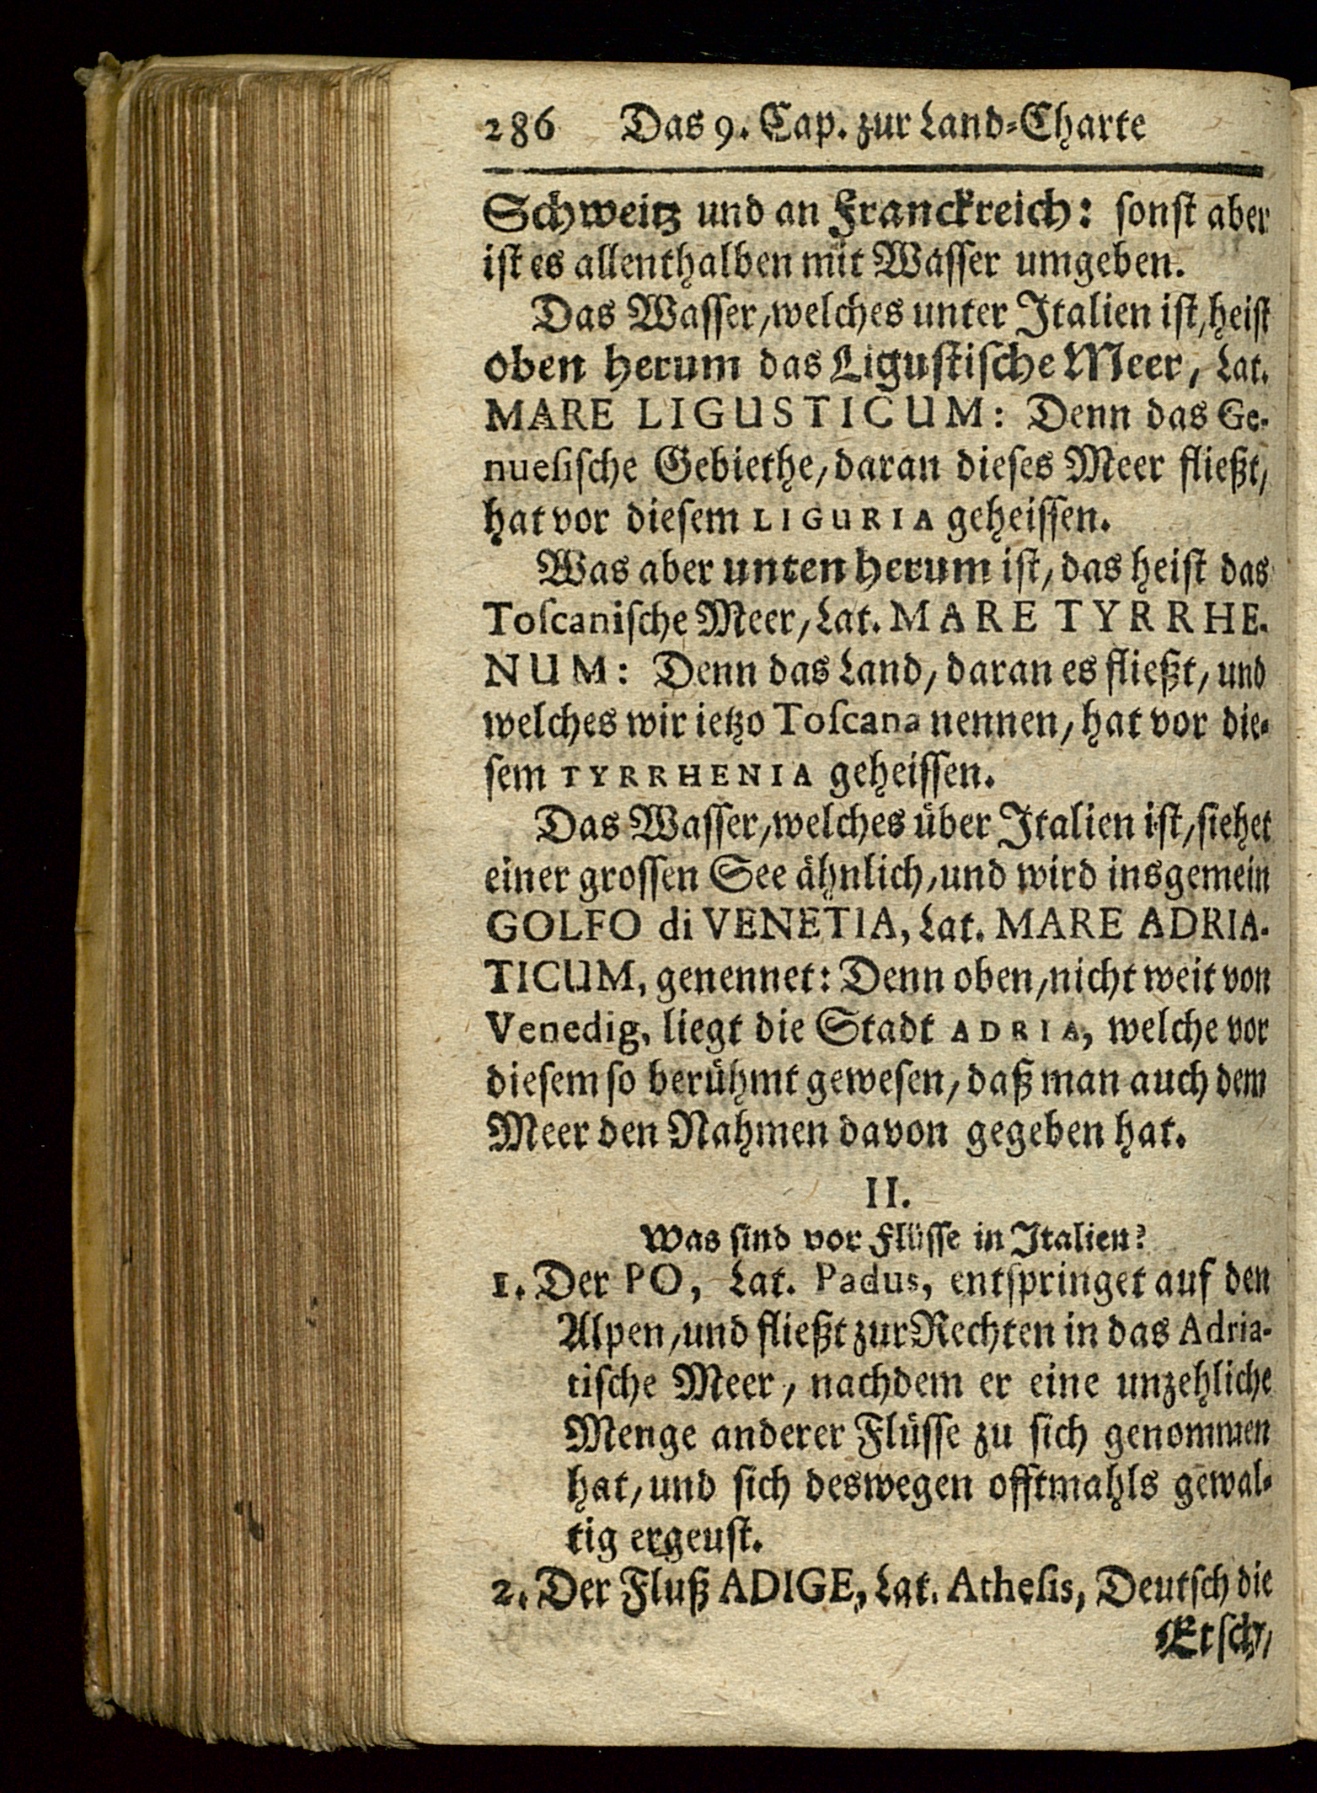 286 Das 9. Cap. zur Land-Charte
Schweitz und an Franckreich: sonst aber
ist es allenthalben mit Wasser umgeben.
Das Wasser, welches unter Italien ist, heist
oben herum das Ligustische Meer, Lat.
MARE LIGUSTICUM: Denn das Ge-
nuesische Gebiethe, daran dieses Meer fließt,
hat vor diesem LIGURIA geheissen.
Was aber unten herum ist, das heist das
Toscanische Meer, Lat. MARE TYRRHE-
NUM: Denn das Land, daran es fließt, und
welches wir ietzo Toscana nennen, hat vor die-
sem TYRRHENIA geheissen.
Das Wasser, welches über Italien ist, siehet
einer grossen See ähnlich, und wird insgemein
GOLFO di VENETIA, Lat. MARE ADRIA-
TICUM, genennet: Denn oben, nicht weit von
Venedig, liegt die Stadt ADRIA, welche vor
diesem so berühmt gewesen, daß man auch dem
Meer den Nahmen davon gegeben hat.
II.
Was sind vor Flüsse in Italien?
1. Der PO, Lat. Padus, entspringet auf den
Alpen, und fließt zur Rechten in das Adria-
tische Meer, nachdem er eine unzehliche
Menge anderer Flüsse zu sich genommen
hat, und sich deswegen offtmahls gewal-
tig ergeust.
2. Der Fluß ADIGE, Lat. Athesis, Deutsch die
Etsch,